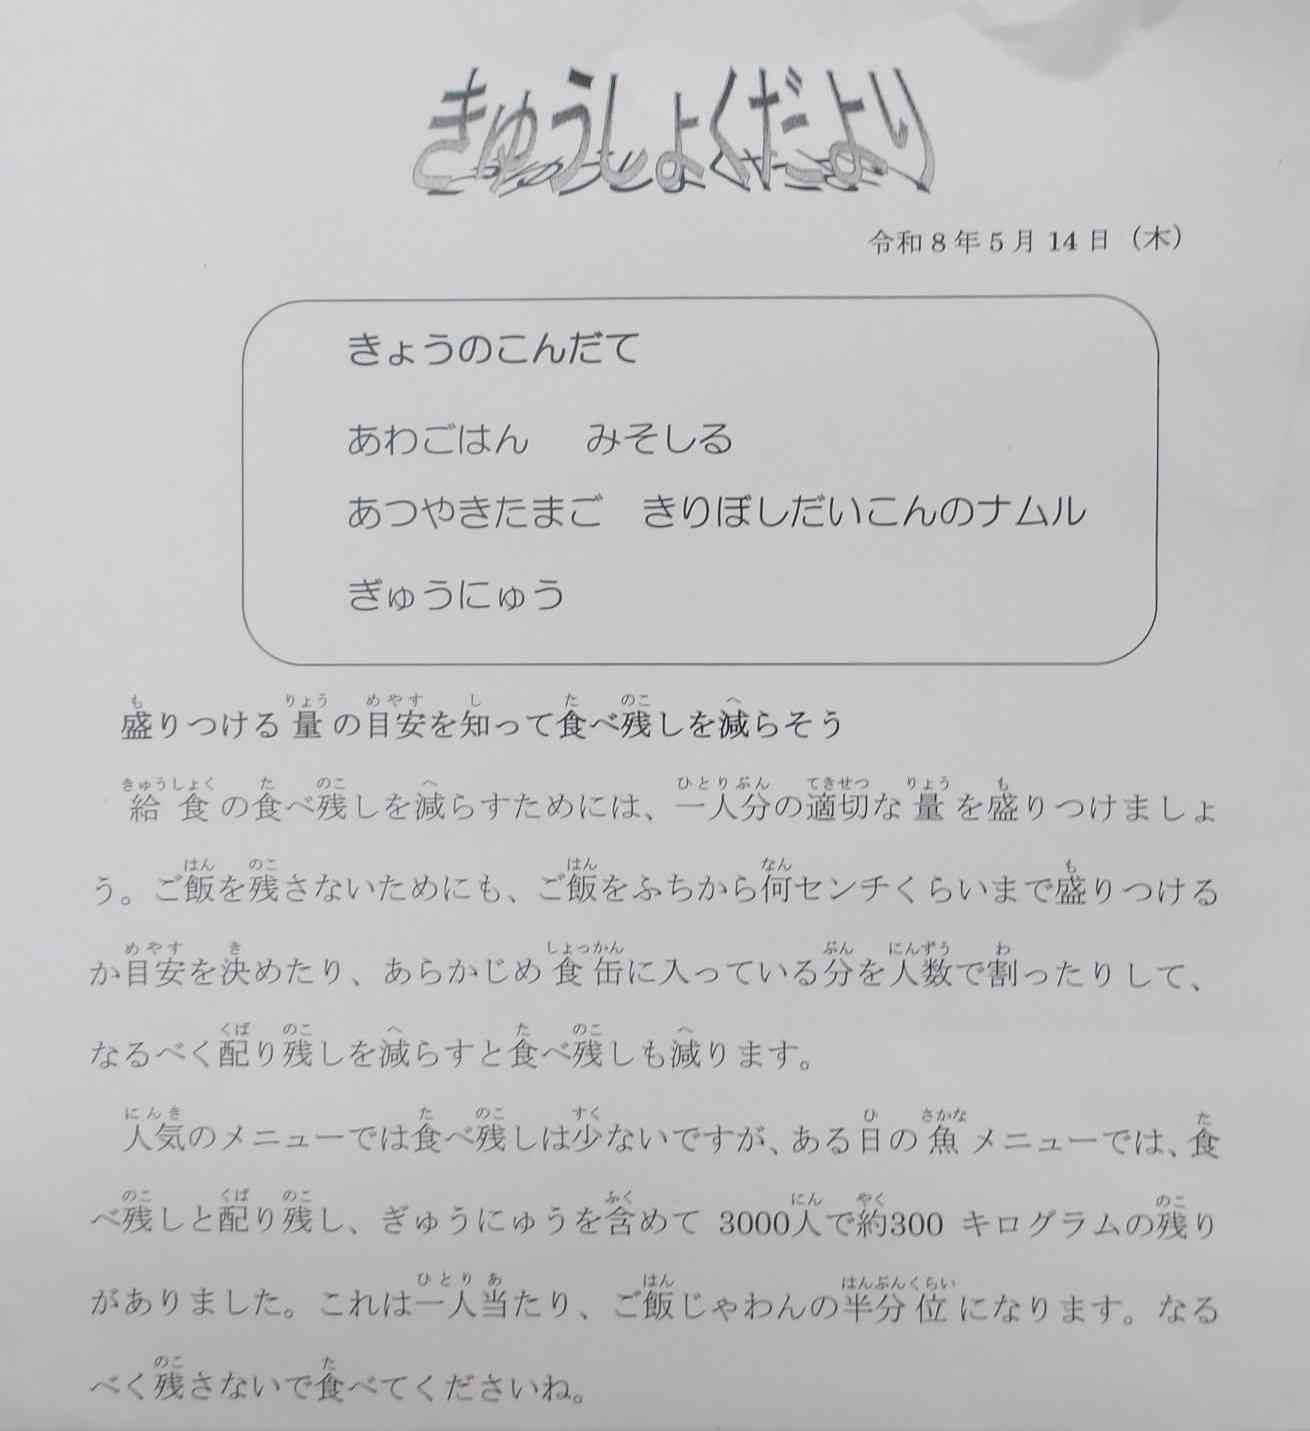 きゅうしょくだより
令和8年5月14日（木）
きょうのこんだて
あわごはん　みそしる
あつやきたまご　きりぼしだいこんのナムル
ぎゅうにゅう
盛りつける量の目安を知って食べ残しを減らそう
給食の食べ残しを減らすためには、一人分の適切な量を盛りつけましょ
う。ご飯を残さないためにも、ご飯をふちから何センチくらいまで盛りつける
か目安を決めたり、あらかじめ食缶に入っている分を人数で割ったりして、
なるべく配り残しを減らすと食べ残しも減ります。
人気のメニューでは食べ残しは少ないですが、ある日の魚メニューでは、食
べ残しと配り残し、ぎゅうにゅうを含めて 3000人で約300 キログラムの残り
がありました。これは一人当たり、ご飯じゃわんの半分位になります。なる
べく残さないで食べてくださいね。